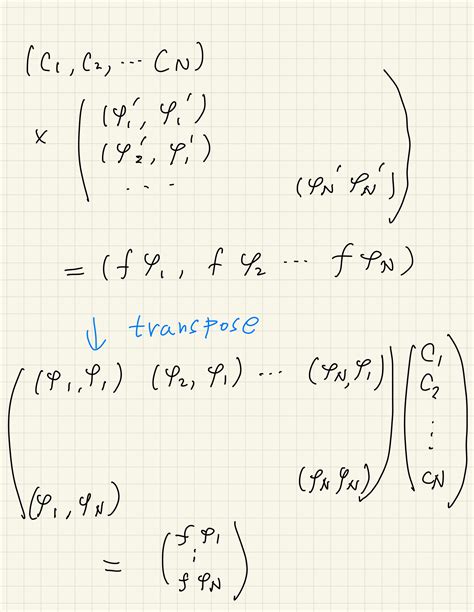 (C₁, C₂, ··· C_N)
× ( (φ₁′, φ₁′)
(φ₂′, φ₁′)
··· (φ_N′ φ_N′) )
= (f φ₁, f φ₂ ··· f φ_N)
↓ transpose
( (φ₁, φ₁) (φ₂, φ₁) ··· (φ_N, φ₁) ) ( C₁
C₂
⋮
(φ_N φ_N) C_N )
(φ₁, φ_N)
= ( f φ₁
⋮
f φ_N )